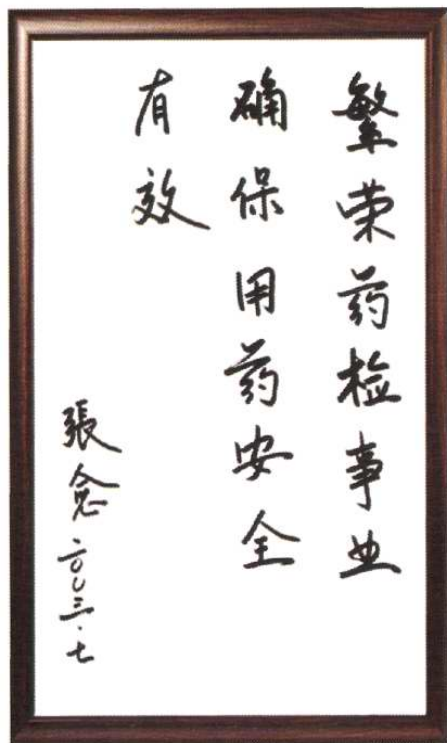 繁荣药检事业
确保用药安全
有效
張念二〇〇三·七